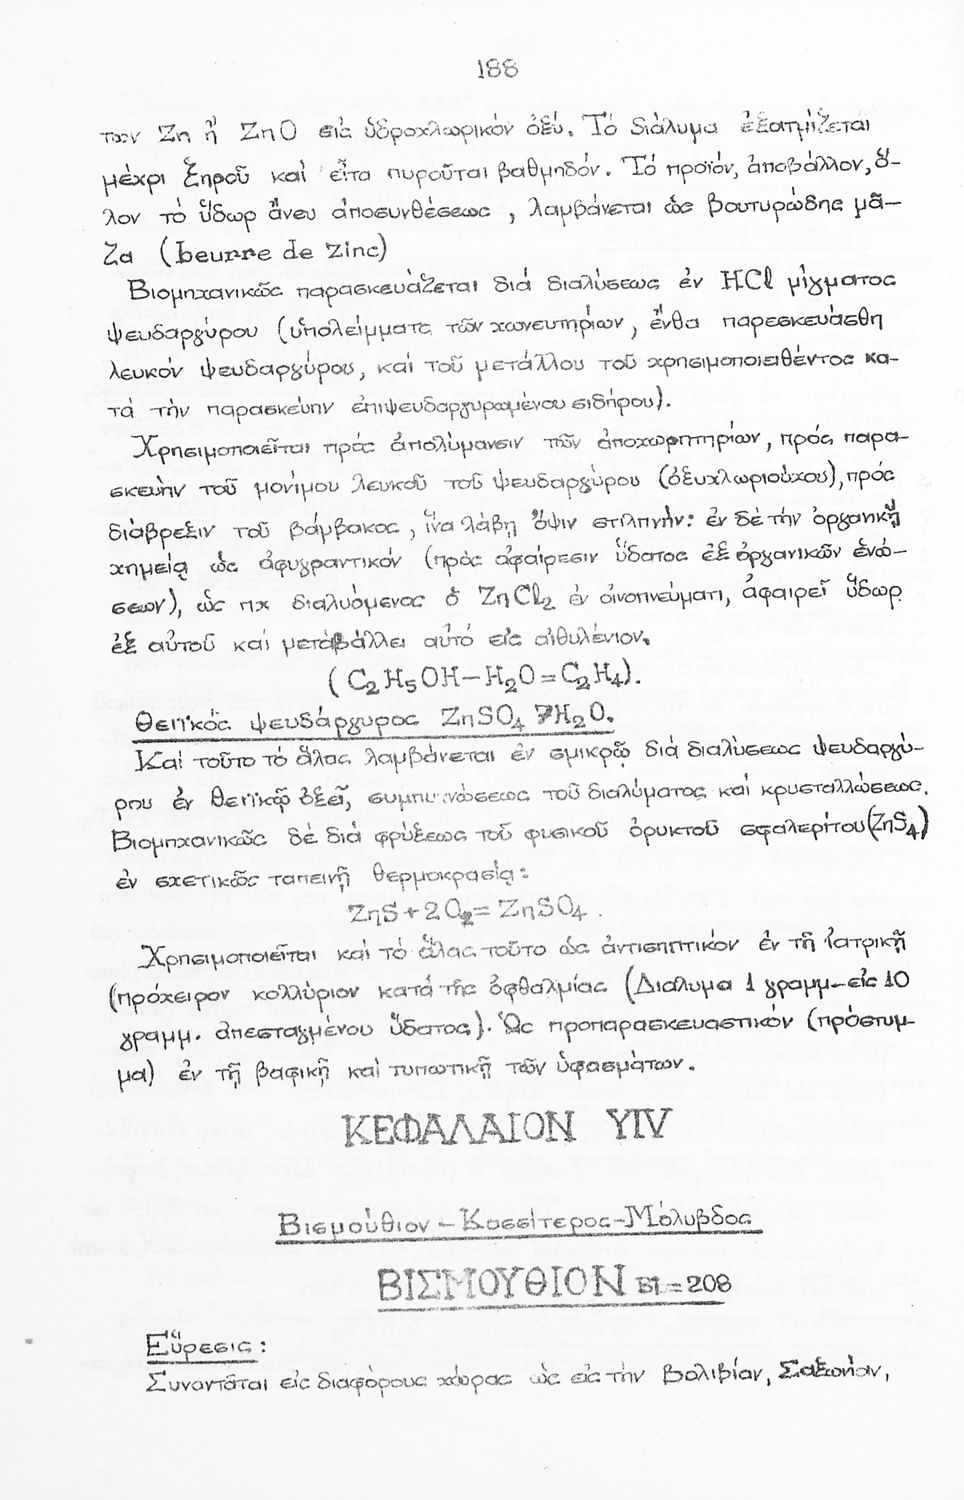 188
των Zn ἤ ZnO εἰς ὑδροχλωρικόν ὀξύ. Τό διάλυμα ἐξατμίζεται
μέχρι ξηροῦ καί εἶτα πυροῦται βαθμηδόν. Τό προϊόν, ἀποβάλλον, ὅ-
λον τό ὕδωρ ἄνευ ἀποσυνθέσεως, λαμβάνεται ὡς βουτυρώδης μᾶ-
ζα (beurre de zinc)
Βιομηχανικῶς παρασκευάζεται διά διαλύσεως ἐν HCl μίγματος
ψευδαργύρου (ὑπολείμματα τῶν χωνευτηρίων, ἔνθα παρεσκευάσθη
λευκόν ψευδαργύρου, καί τοῦ μετάλλου τοῦ χρησιμοποιειθέντος κα-
τά τήν παρασκευήν ἐπιψευδαργυρωμένου σιδήρου).
Χρησιμοποιεῖται πρός ἀπολύμανσιν τῶν ἀποχωρητηρίων, πρός παρα-
σκευήν τοῦ μονίμου λευκοῦ τοῦ ψευδαργύρου (ὀξυχλωριούχου), πρός
διάβρεξιν τοῦ βάμβακος, ἵνα λάβῃ ὄψιν στιλπνήν: ἐν δέ τήν ὀργανικῇ
χημείᾳ ὡς ἀφυγραντικόν (πρός ἀφαίρεσιν ὕδατος ἐξ ὀργανικῶν ἑνώ-
σεων), ὡς πχ διαλυόμενος ὁ ZnCl₂ ἐν οἰνοπνεύματι, ἀφαιρεῖ ὕδωρ
ἐξ αὐτοῦ καί μεταβάλλει αὐτό εἰς αἰθυλένιον.
(C₂H₅OH-H₂O=C₂H₄).
Θειϊκός ψευδάργυρος ZnSO₄ 7H₂O.
Καί τοῦτο τό ἅλας λαμβάνεται ἐν σμικρῷ διά διαλύσεως ψευδαργύ-
ρου ἐν θειϊκῷ ὀξεῖ, συμπυκνώσεως τοῦ διαλύματος καί κρυσταλλώσεως.
Βιομηχανικῶς δέ διά φρύξεως τοῦ φυσικοῦ ὀρυκτοῦ σφαλερίτου (ZnS₄)
ἐν σχετικῶς ταπεινῇ θερμοκρασίᾳ:
ZnS+2O₂=ZnSO₄.
Χρησιμοποιεῖται καί τό ἅλας τοῦτο ὡς ἀντισηπτικόν ἐν τῇ Ἰατρικῇ
(πρόχειρον κολλύριον κατά τῆς ὀφθαλμίας (Διάλυμα 1 γραμμ-εἰς 10
γραμμ. ἀπεσταγμένου ὕδατος). Ὡς προπαρασκευαστικόν (πρόστυμ-
μα) ἐν τῇ βαφικῇ καί τυπωτικῇ τῶν ὑφασμάτων.
ΚΕΦΑΛΑΙΟΝ ΥΙV
Βισμούθιον - Κασσίτερος-Μόλυβδος
ΒΙΣΜΟΥΘΙΟΝ Bi=208
Εὕρεσις:
Συναντᾶται εἰς διαφόρους χώρας ὡς εἰς τήν Βολιβίαν, Σαξωνίαν,